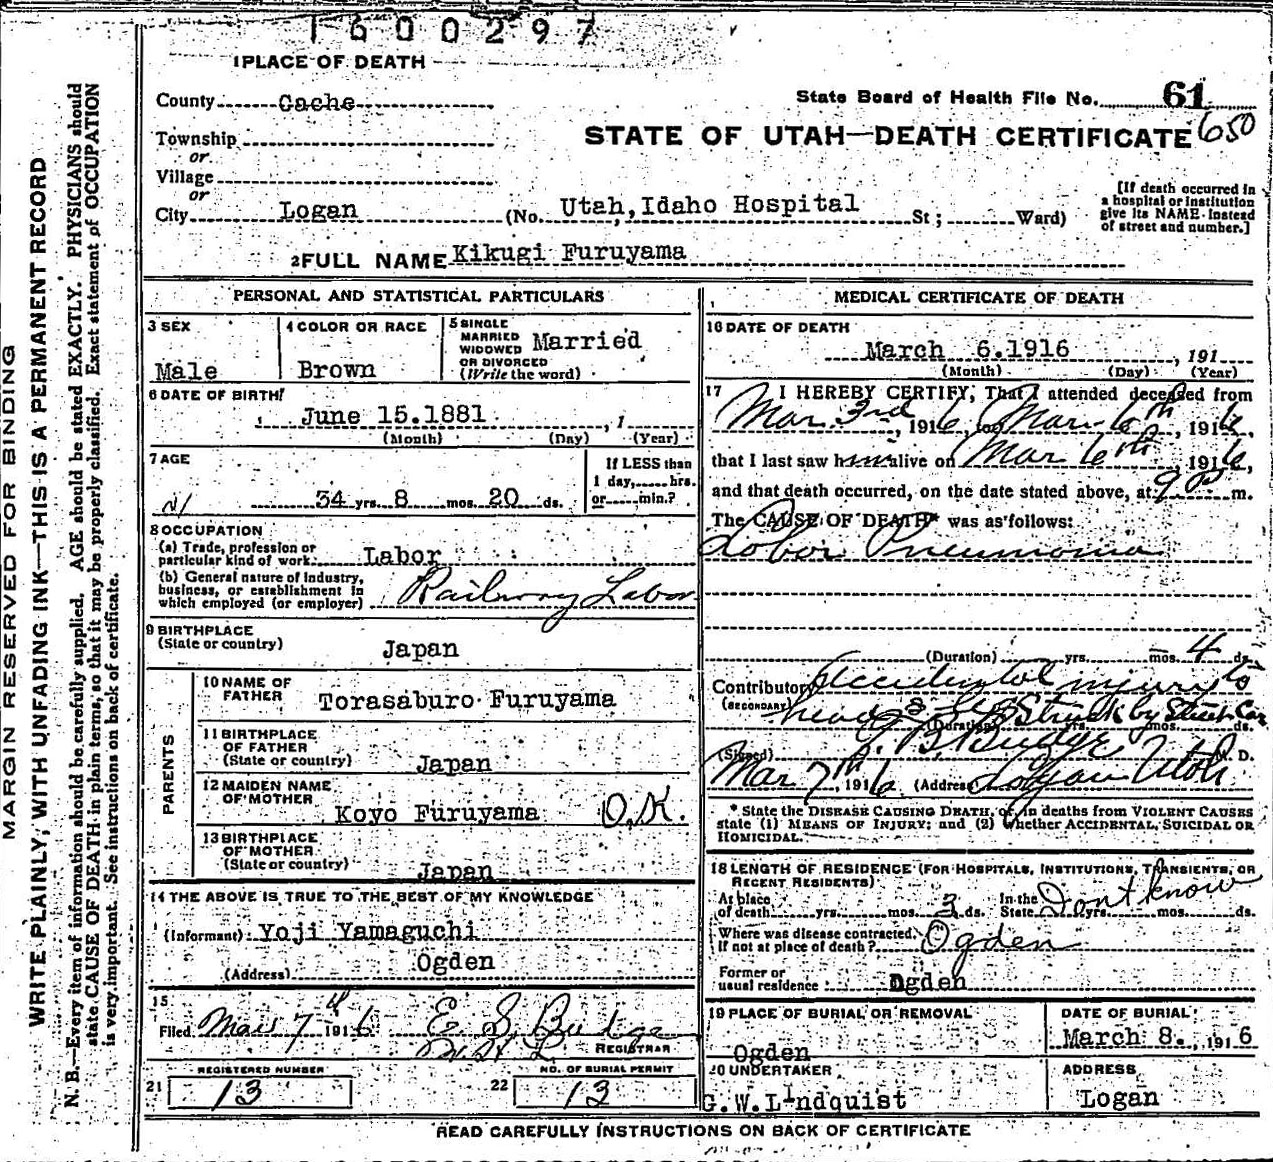 1600297
1 PLACE OF DEATH
County Cache
State Board of Health File No. 61
Township
or
STATE OF UTAH—DEATH CERTIFICATE 650
Village
or
City Logan (No. Utah, Idaho Hospital St; Ward)
[If death occurred in
a hospital or institution
give its NAME instead
of street and number.]
2 FULL NAME Kikugi Furuyama
PERSONAL AND STATISTICAL PARTICULARS
3 SEX
Male
4 COLOR OR RACE
Brown
5 SINGLE
MARRIED
WIDOWED
OR DIVORCED
(Write the word)
Married
6 DATE OF BIRTH
June 15.1881 , 1
(Month) (Day) (Year)
7 AGE
34 yrs. 8 mos. 20 ds.
If LESS than
1 day, hrs.
or min.?
8 OCCUPATION
(a) Trade, profession or
particular kind of work Labor
(b) General nature of industry,
business, or establishment in
which employed (or employer) Railway Labor
9 BIRTHPLACE
(State or country) Japan
PARENTS
10 NAME OF
FATHER Torasaburo Furuyama
11 BIRTHPLACE
OF FATHER
(State or country) Japan
12 MAIDEN NAME
OF MOTHER
Koyo Furuyama O.K.
13 BIRTHPLACE
OF MOTHER
(State or country) Japan
14 THE ABOVE IS TRUE TO THE BEST OF MY KNOWLEDGE
(Informant) Yoji Yamaguchi
(Address) Ogden
15
Filed Mar 7 1916 E. S. Budge
REGISTRAR
REGISTERED NUMBER
21 13
NO. OF BURIAL PERMIT
22 13
MEDICAL CERTIFICATE OF DEATH
16 DATE OF DEATH
March 6.1916 , 191
(Month) (Day) (Year)
17 I HEREBY CERTIFY, That I attended deceased from
Mar 3rd, 1916, to Mar 6th, 1916,
that I last saw him alive on Mar 6th, 1916,
and that death occurred, on the date stated above, at 9 P m.
The CAUSE OF DEATH* was as follows:
Lobar Pneumonia
(Duration) yrs. mos. 4 ds.
Contributory Accidental injury to
(SECONDARY) head & leg Struck by Street Car
(Duration) yrs. mos. ds.
(Signed) Budge M. D.
Mar 7th, 1916 (Address) Logan Utah
* State the DISEASE CAUSING DEATH, or, in deaths from VIOLENT CAUSES
state (1) MEANS OF INJURY; and (2) Whether ACCIDENTAL, SUICIDAL OR
HOMICIDAL.
18 LENGTH OF RESIDENCE (FOR HOSPITALS, INSTITUTIONS, TRANSIENTS, OR
RECENT RESIDENTS)
At place
of death yrs. mos. 3 ds.
In the
State Dont know yrs. mos. ds.
Where was disease contracted,
If not at place of death? Ogden
Former or
usual residence Ogden
19 PLACE OF BURIAL OR REMOVAL
Ogden
DATE OF BURIAL
March 8., 1916
20 UNDERTAKER
G.W.Lindquist
ADDRESS
Logan
READ CAREFULLY INSTRUCTIONS ON BACK OF CERTIFICATE
MARGIN RESERVED FOR BINDING
WRITE PLAINLY, WITH UNFADING INK—THIS IS A PERMANENT RECORD
N. B.—Every item of information should be carefully supplied. AGE should be stated EXACTLY. PHYSICIANS should
state CAUSE OF DEATH in plain terms, so that it may be properly classified. Exact statement of OCCUPATION
is very important. See instructions on back of certificate.